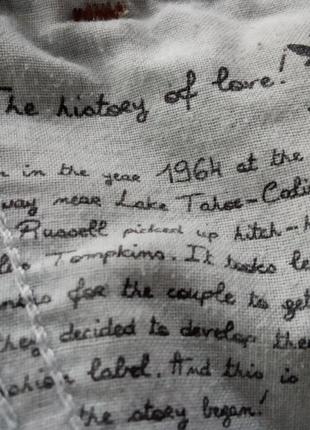 The history of love!
in the year 1964 at the
way near Lake Tahoe-Cali
Russell picked up hitch-h
Tompkins. It tooks le
for the couple to get
they decided to develop the
label. And this is
the story began!